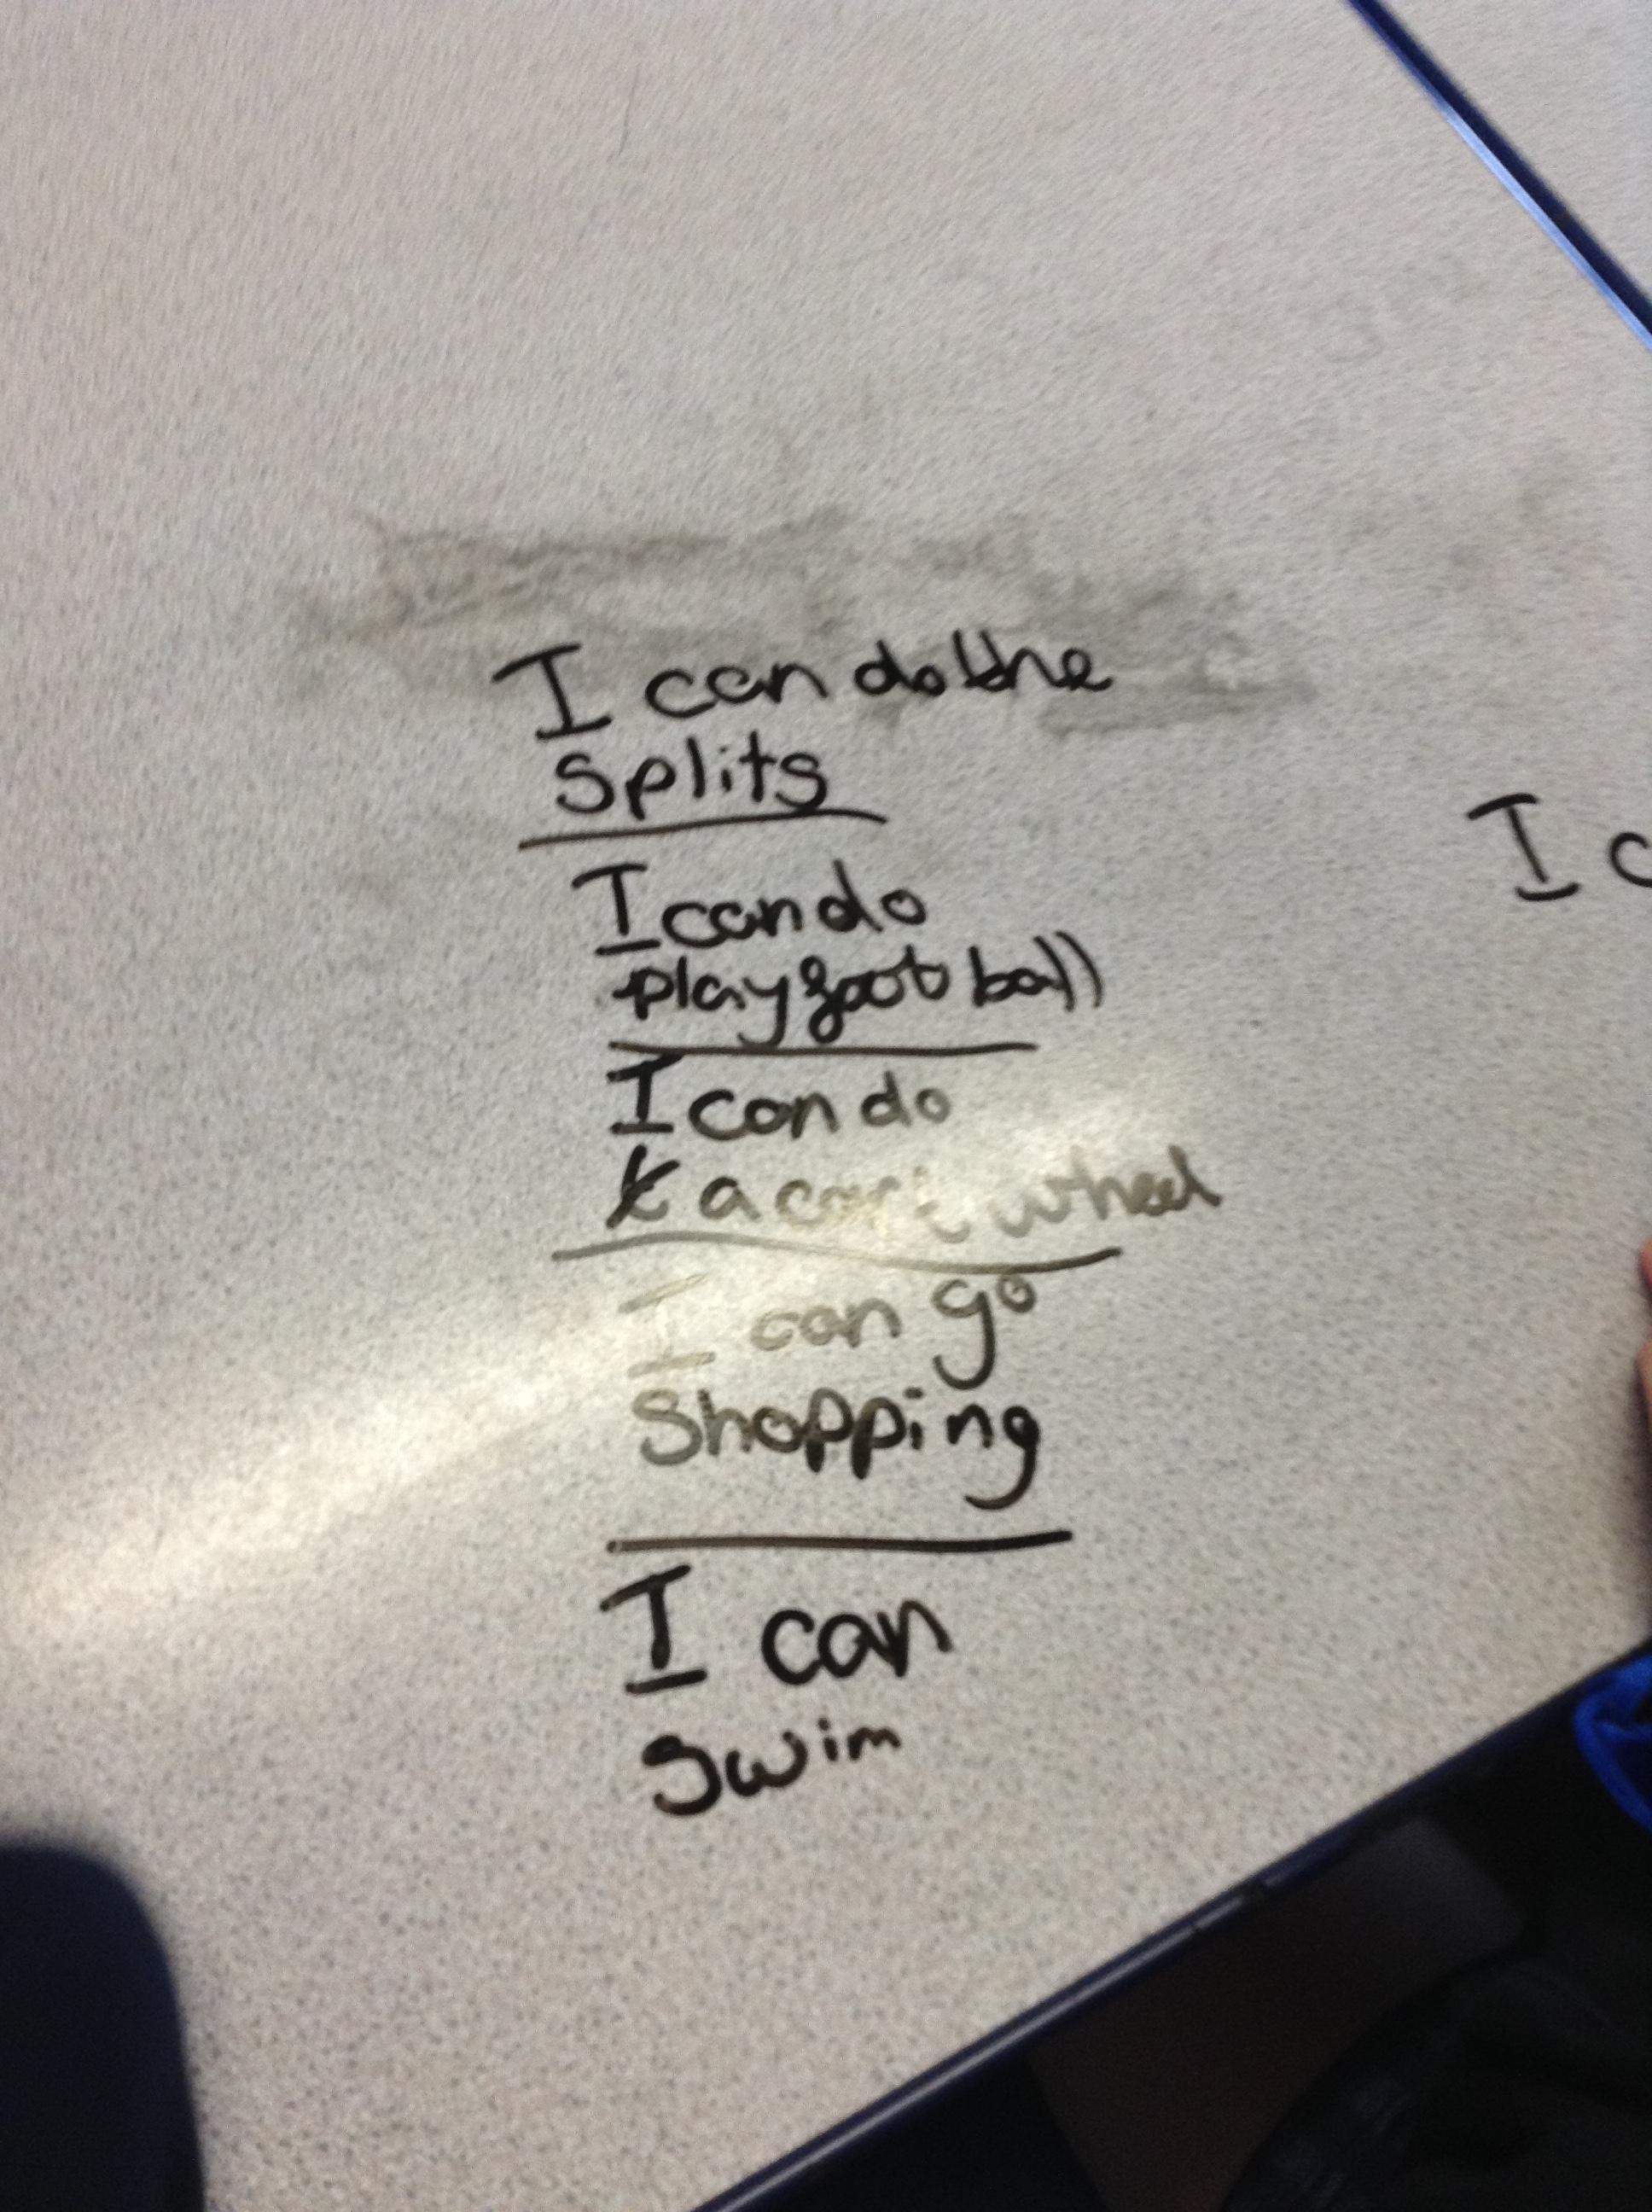 I can do the
splits
I can do
play foot ball
I can do
a cart wheel
I can go
Shopping
I can
swim
I c